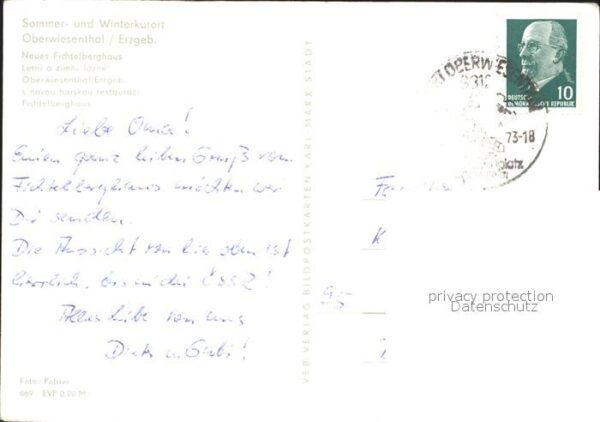 Sommer- und Winterkurort
Oberwiesenthal / Erzgeb.
Neues Fichtelberghaus
Letni a zimní lázně
Oberwiesenthal/Erzgeb.
s novou horskou restaurací
Fichtelberghaus
Liebe Oma!
Einen ganz lieben Gruß vom
Fichtelberghaus möchten wir
Dir senden.
Die Aussicht von hier oben ist
herrlich, bis in die ČSSR!
Alles Liebe von uns
Dieter u. Gabi!
Foto: Polster
669 EVP 0,20 M
VEB VERLAG BILDPOSTKARTEN KARL-MARX-STADT
OBERWIESENTHAL
73-18
platz
10
DEUTSCHE
DEMOKRATISCHE REPUBLIK
95
privacy protection
Datenschutz